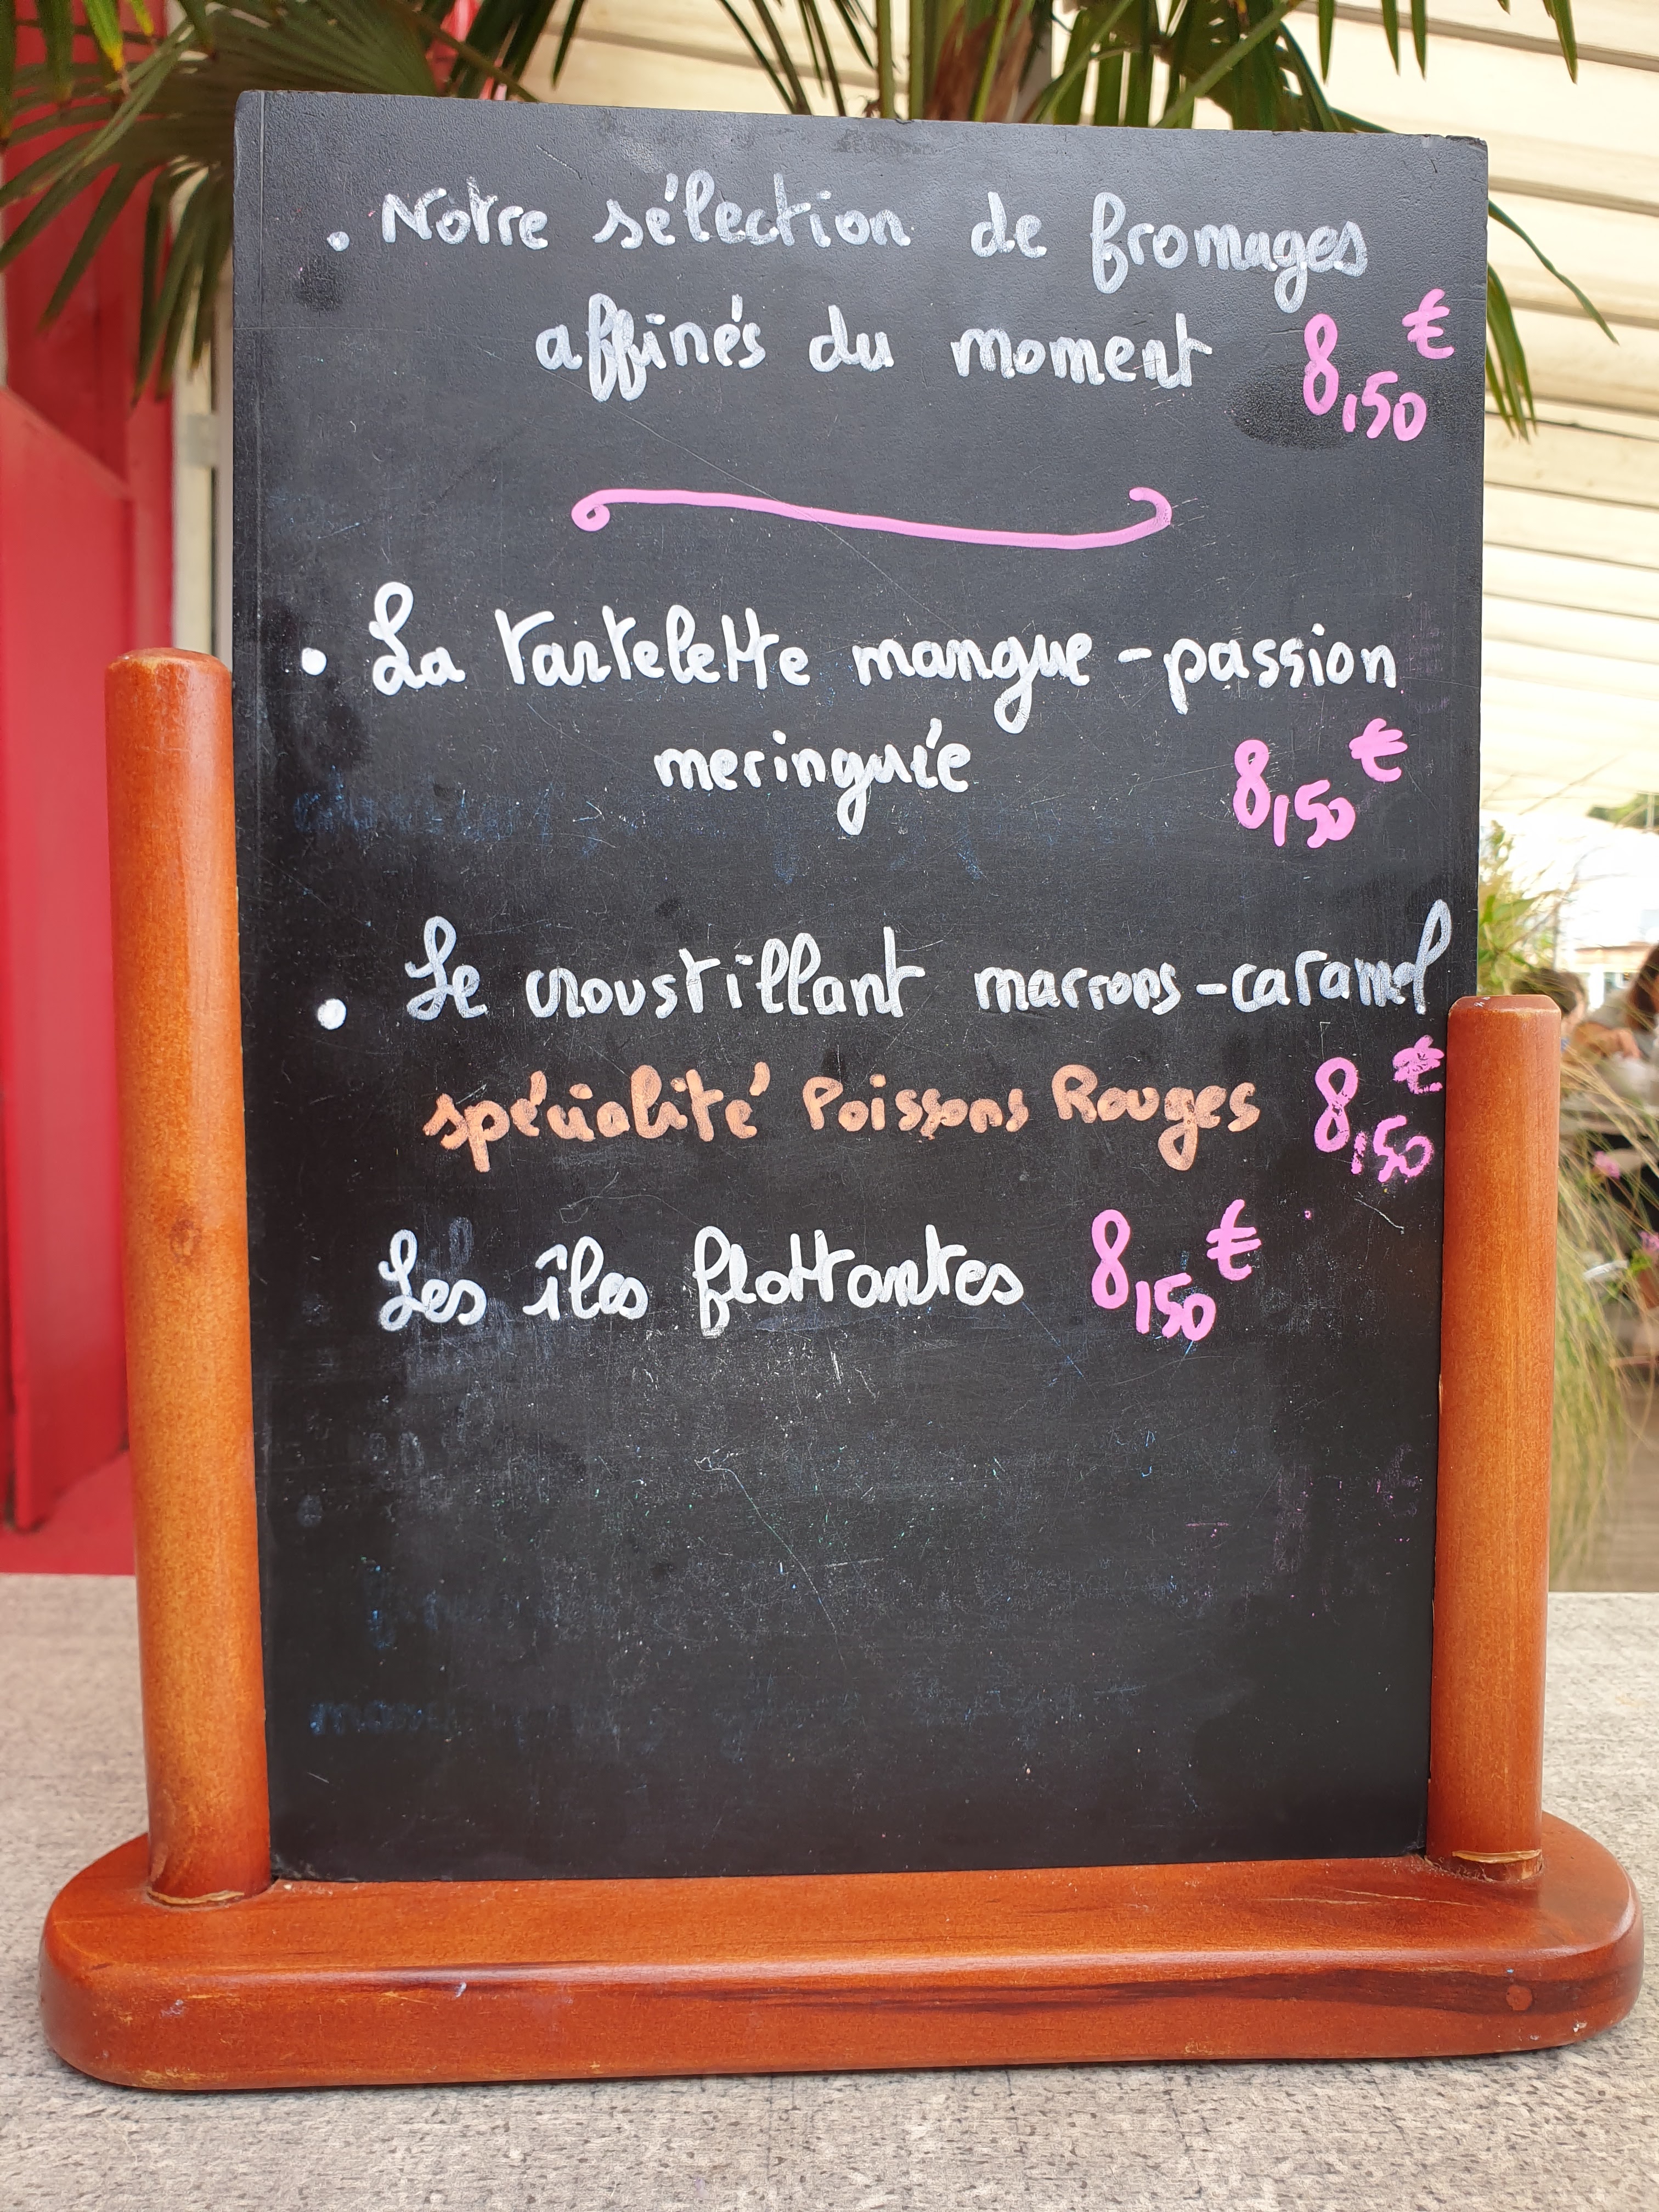 . Notre sélection de fromages
affinés du moment 8,50€
• La tartelette mangue-passion
meringuée 8,50€
• Le croustillant marrons-caramel
spécialité Poissons Rouges 8,50€
Les îles flottantes 8,50€